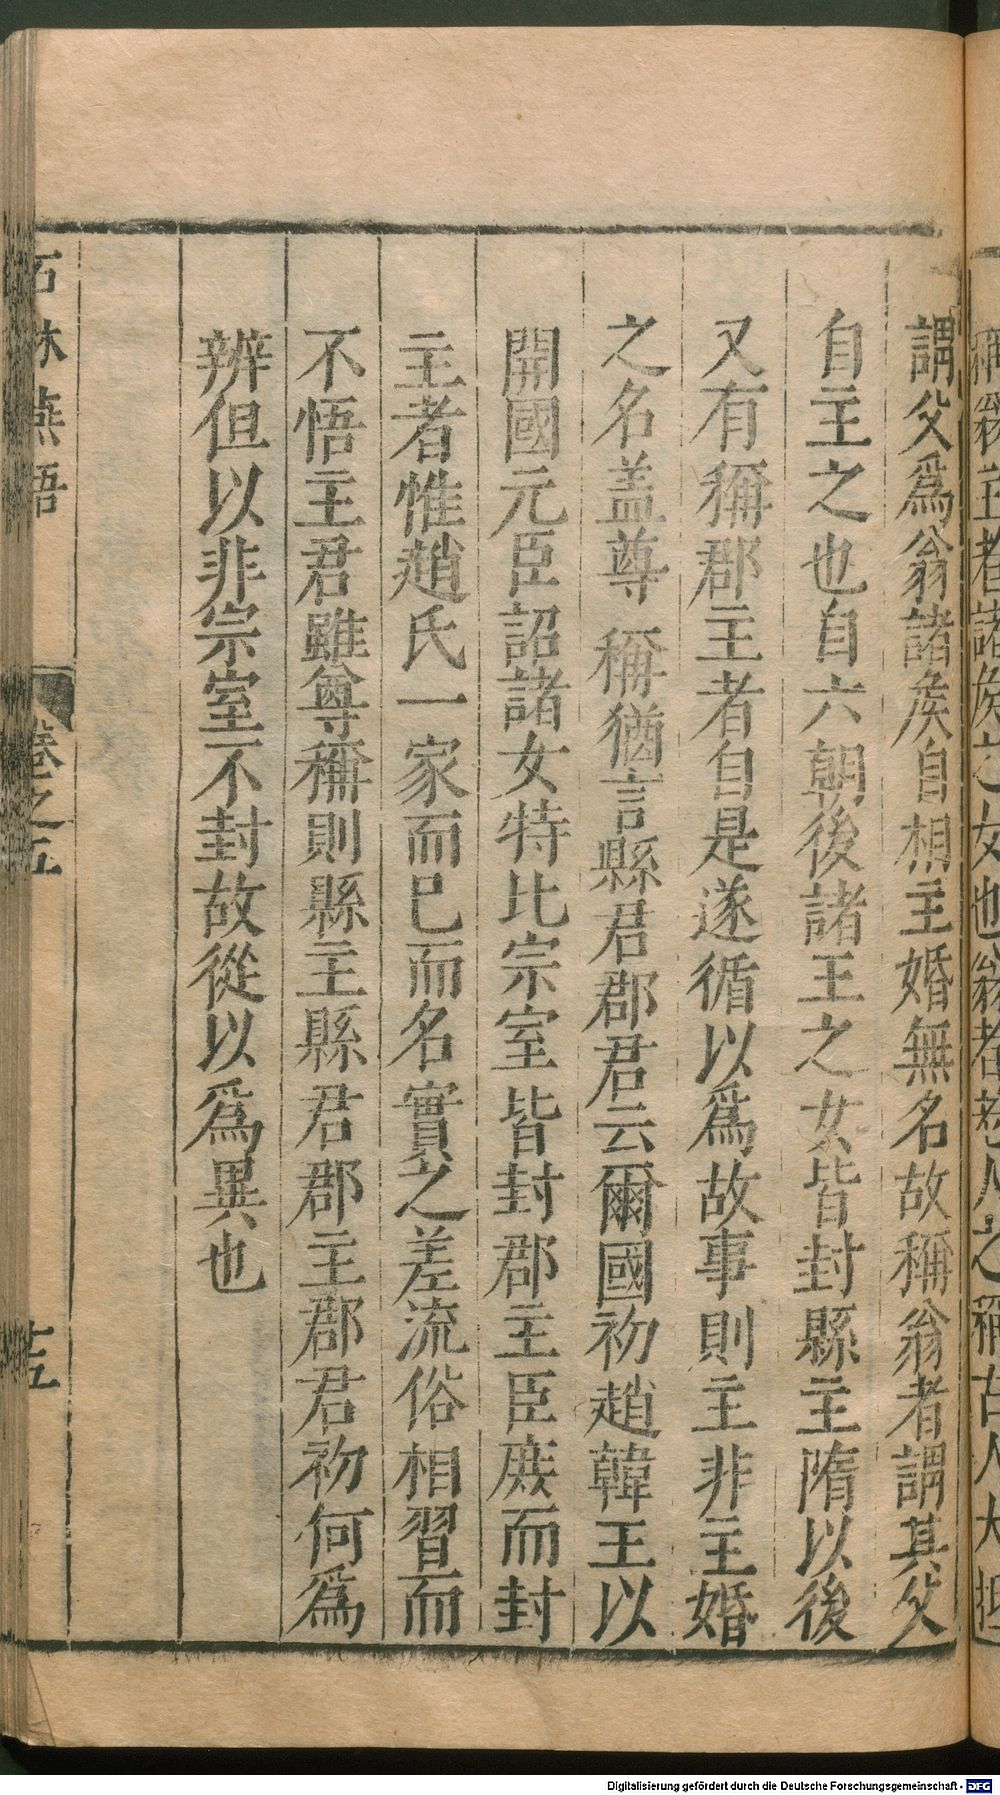 稱翁主者諸侯之女也翁者老人之稱古人大抵
謂父爲翁諸侯自相主婚無名故稱翁者謂其父
自主之也自六朝後諸王之女皆封縣主隋以後
又有稱郡主者自是遂循以爲故事則主非主婚
之名盖尊稱猶言縣君郡君云爾國初趙韓王以
開國元臣詔諸女特比宗室皆封郡主臣庶而封
主者惟趙氏一家而已而名實之差流俗相習而
不悟主君雖尊稱則縣主縣君郡主郡君初何爲
辨但以非宗室不封故從以爲異也
石林燕語 卷之五 十五
Digitalisierung gefördert durch die Deutsche Forschungsgemeinschaft - DFG